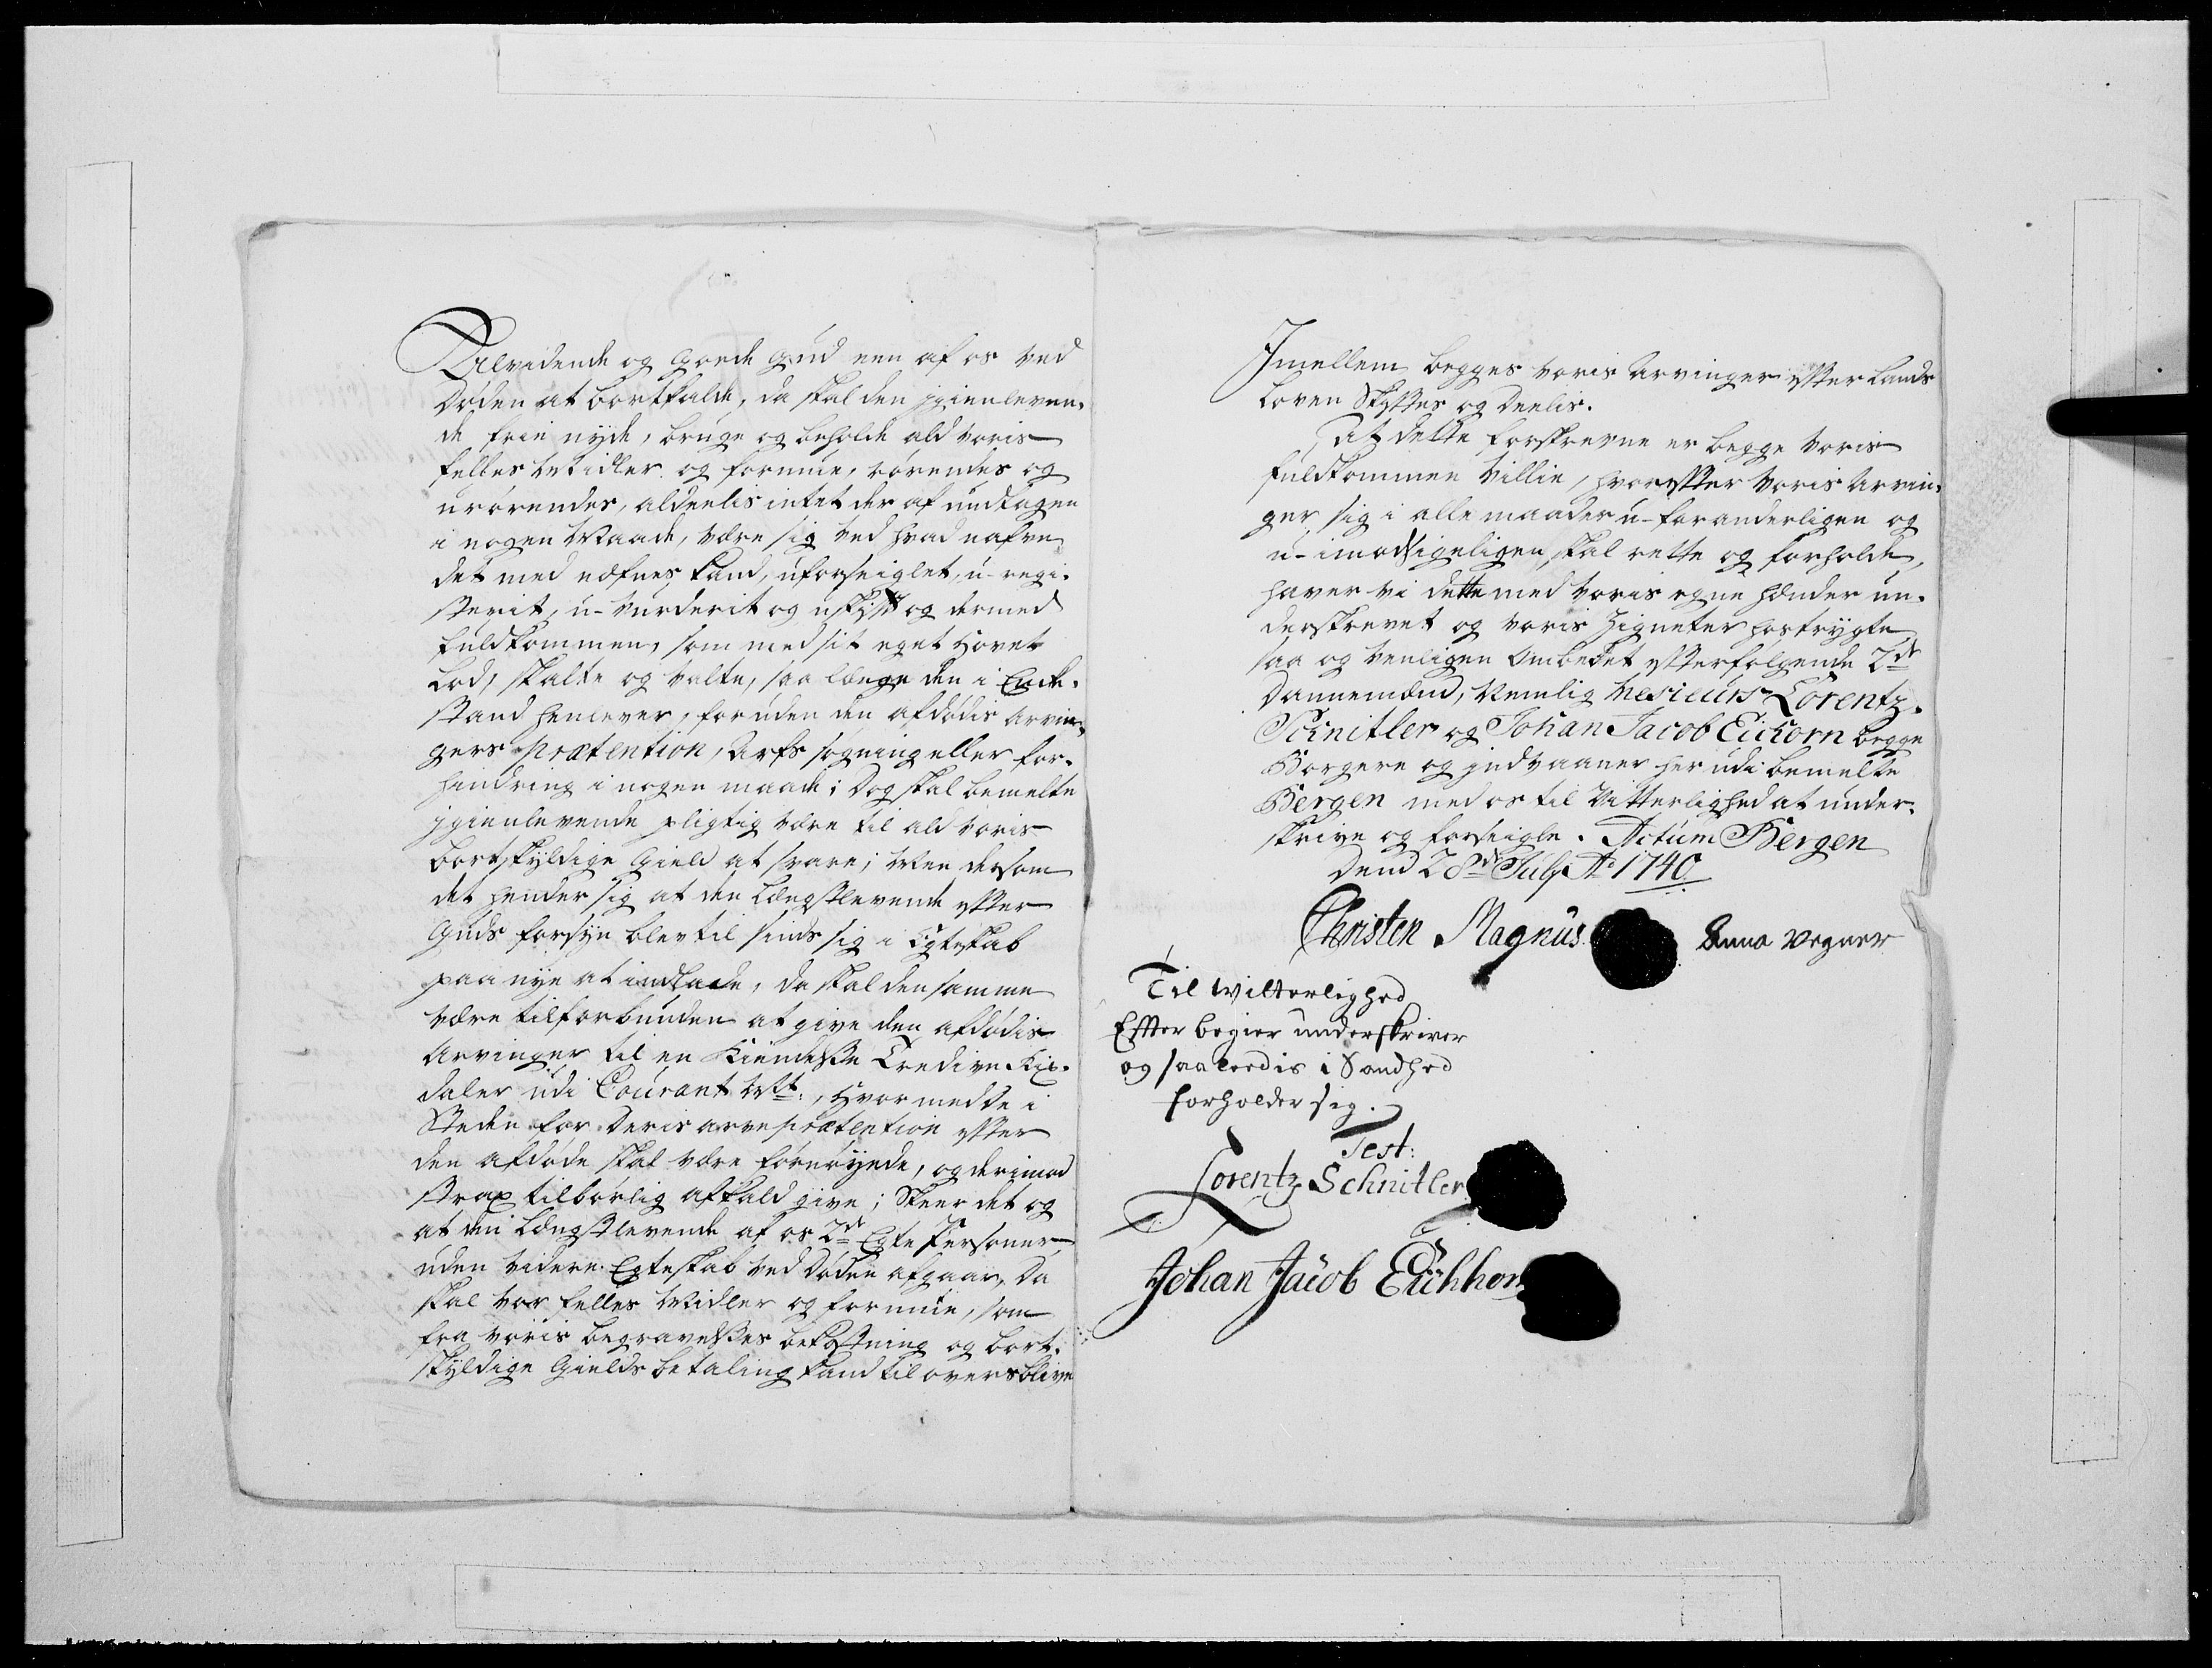 Alvidende og goede Gud een af os ved
Døden at bortkalde, da skal den igienleven¬
de frie nyde, bruge og beholde ald voris
felles Midler og formue, rørendes og
urørendes, aldeelis intet der af undtagen
i nogen Maade, være sig ved hvad nafn
det med næfnes kand, uforseiglet, u-regi¬
sterit, u-vurderit og uskift og dermed
fuldkommen, som med sit eget Hovet
Lod, skalte og valte, saa længe den i Encke¬
stand henlever, foruden den afdødis Arvin¬
gers prætention, Arfs søgning eller for¬
hindring i nogen maade; Dog skal bemelte
igienlevende pligtig være til ald voris
bortskyldige Gield at svare; Men dersom
det hender sig at den Længstlevende efter
Guds forsyn blev til sinds sig i Egteskab
paa nye at indlade, da skal den samme
være tilforbunden at give den afdødis
Arvinger til en Kiendelse Tredive Rix¬
daler udi Courant Mt:, Hvormed de i
Steden for Deris arve prætention efter
den afdøde skal være fornøyede, og derimod
strax tilbørlig afkald give; Skeer det og
at den Længstlevende af os 2de Egte Personer
uden videre Egteskab ved Døden afgaar, Da
skal vor felles Midler og formue, som
fra voris begravelses bekostning og bort¬
skyldige Gields betaling kand til overs blive
Imellem begges voris Arvinger efter Lands
Loven Skiftes og Deelis.
At dette forskrevne er begge voris
fuldkommen Villie, hvorefter voris Arvin¬
ger sig i alle maader u-foranderligen og
u-imodsigeligen skal rette og forholde,
haver vi dette med voris egne hænder un¬
derskrevet og voris Zigneter hostrygte,
saa og venligen Ombedet efterfølgende 2de
Dannemænd, Nemlig Mesieurs Lorentz
Schnitler og Johan Jacob Eichorn begge
Borgere og Indvaaner her udi bemelte
Bergen med os til Vitterlighed at under¬
skrive og forseigle. Actum Bergen
Dend 28de Julij Ao 1740
Christen Magnus Anna Wegner
Til Witterlighed
Efter begier underskriver
og saaledis i Sandhed
forholder sig.
Test:
Lorentz Schnitler
Johan Jacob Eichhorn